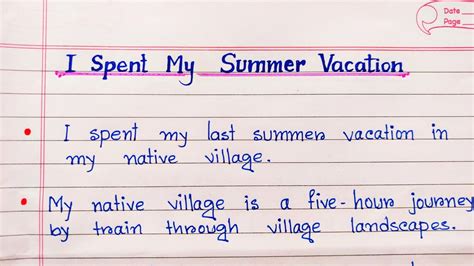 Date
Page
I Spent My Summer Vacation
• I spent my last summer vacation in
my native village.
• My native village is a five-hour journey
by train through village landscapes.